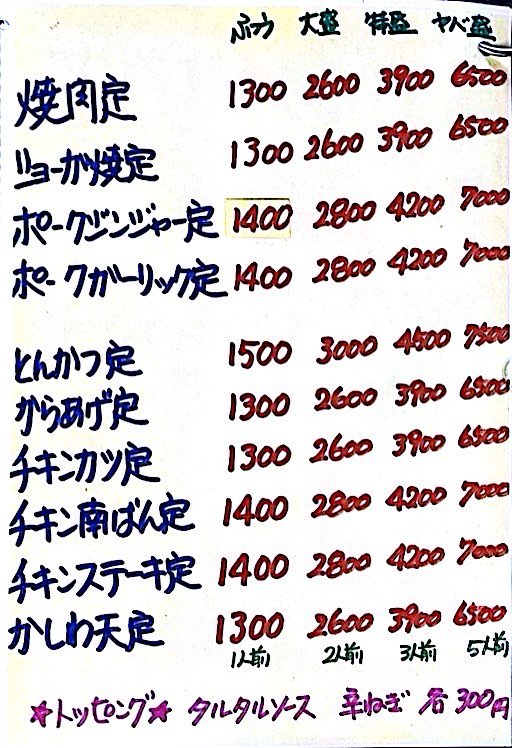 ふつう 大盛 特盛 ヤバ盛
焼肉定 1300 2600 3900 6500
ショーガ焼定 1300 2600 3900 6500
ポークジンジャー定 1400 2800 4200 7000
ポークガーリック定 1400 2800 4200 7000
とんかつ定 1500 3000 4500 7500
からあげ定 1300 2600 3900 6500
チキンカツ定 1300 2600 3900 6500
チキン南ばん定 1400 2800 4200 7000
チキンステーキ定 1400 2800 4200 7000
かしわ天定 1300 2600 3900 6500
1人前 2人前 3人前 5人前
☆トッピング☆ タルタルソース 辛ねぎ 各300円